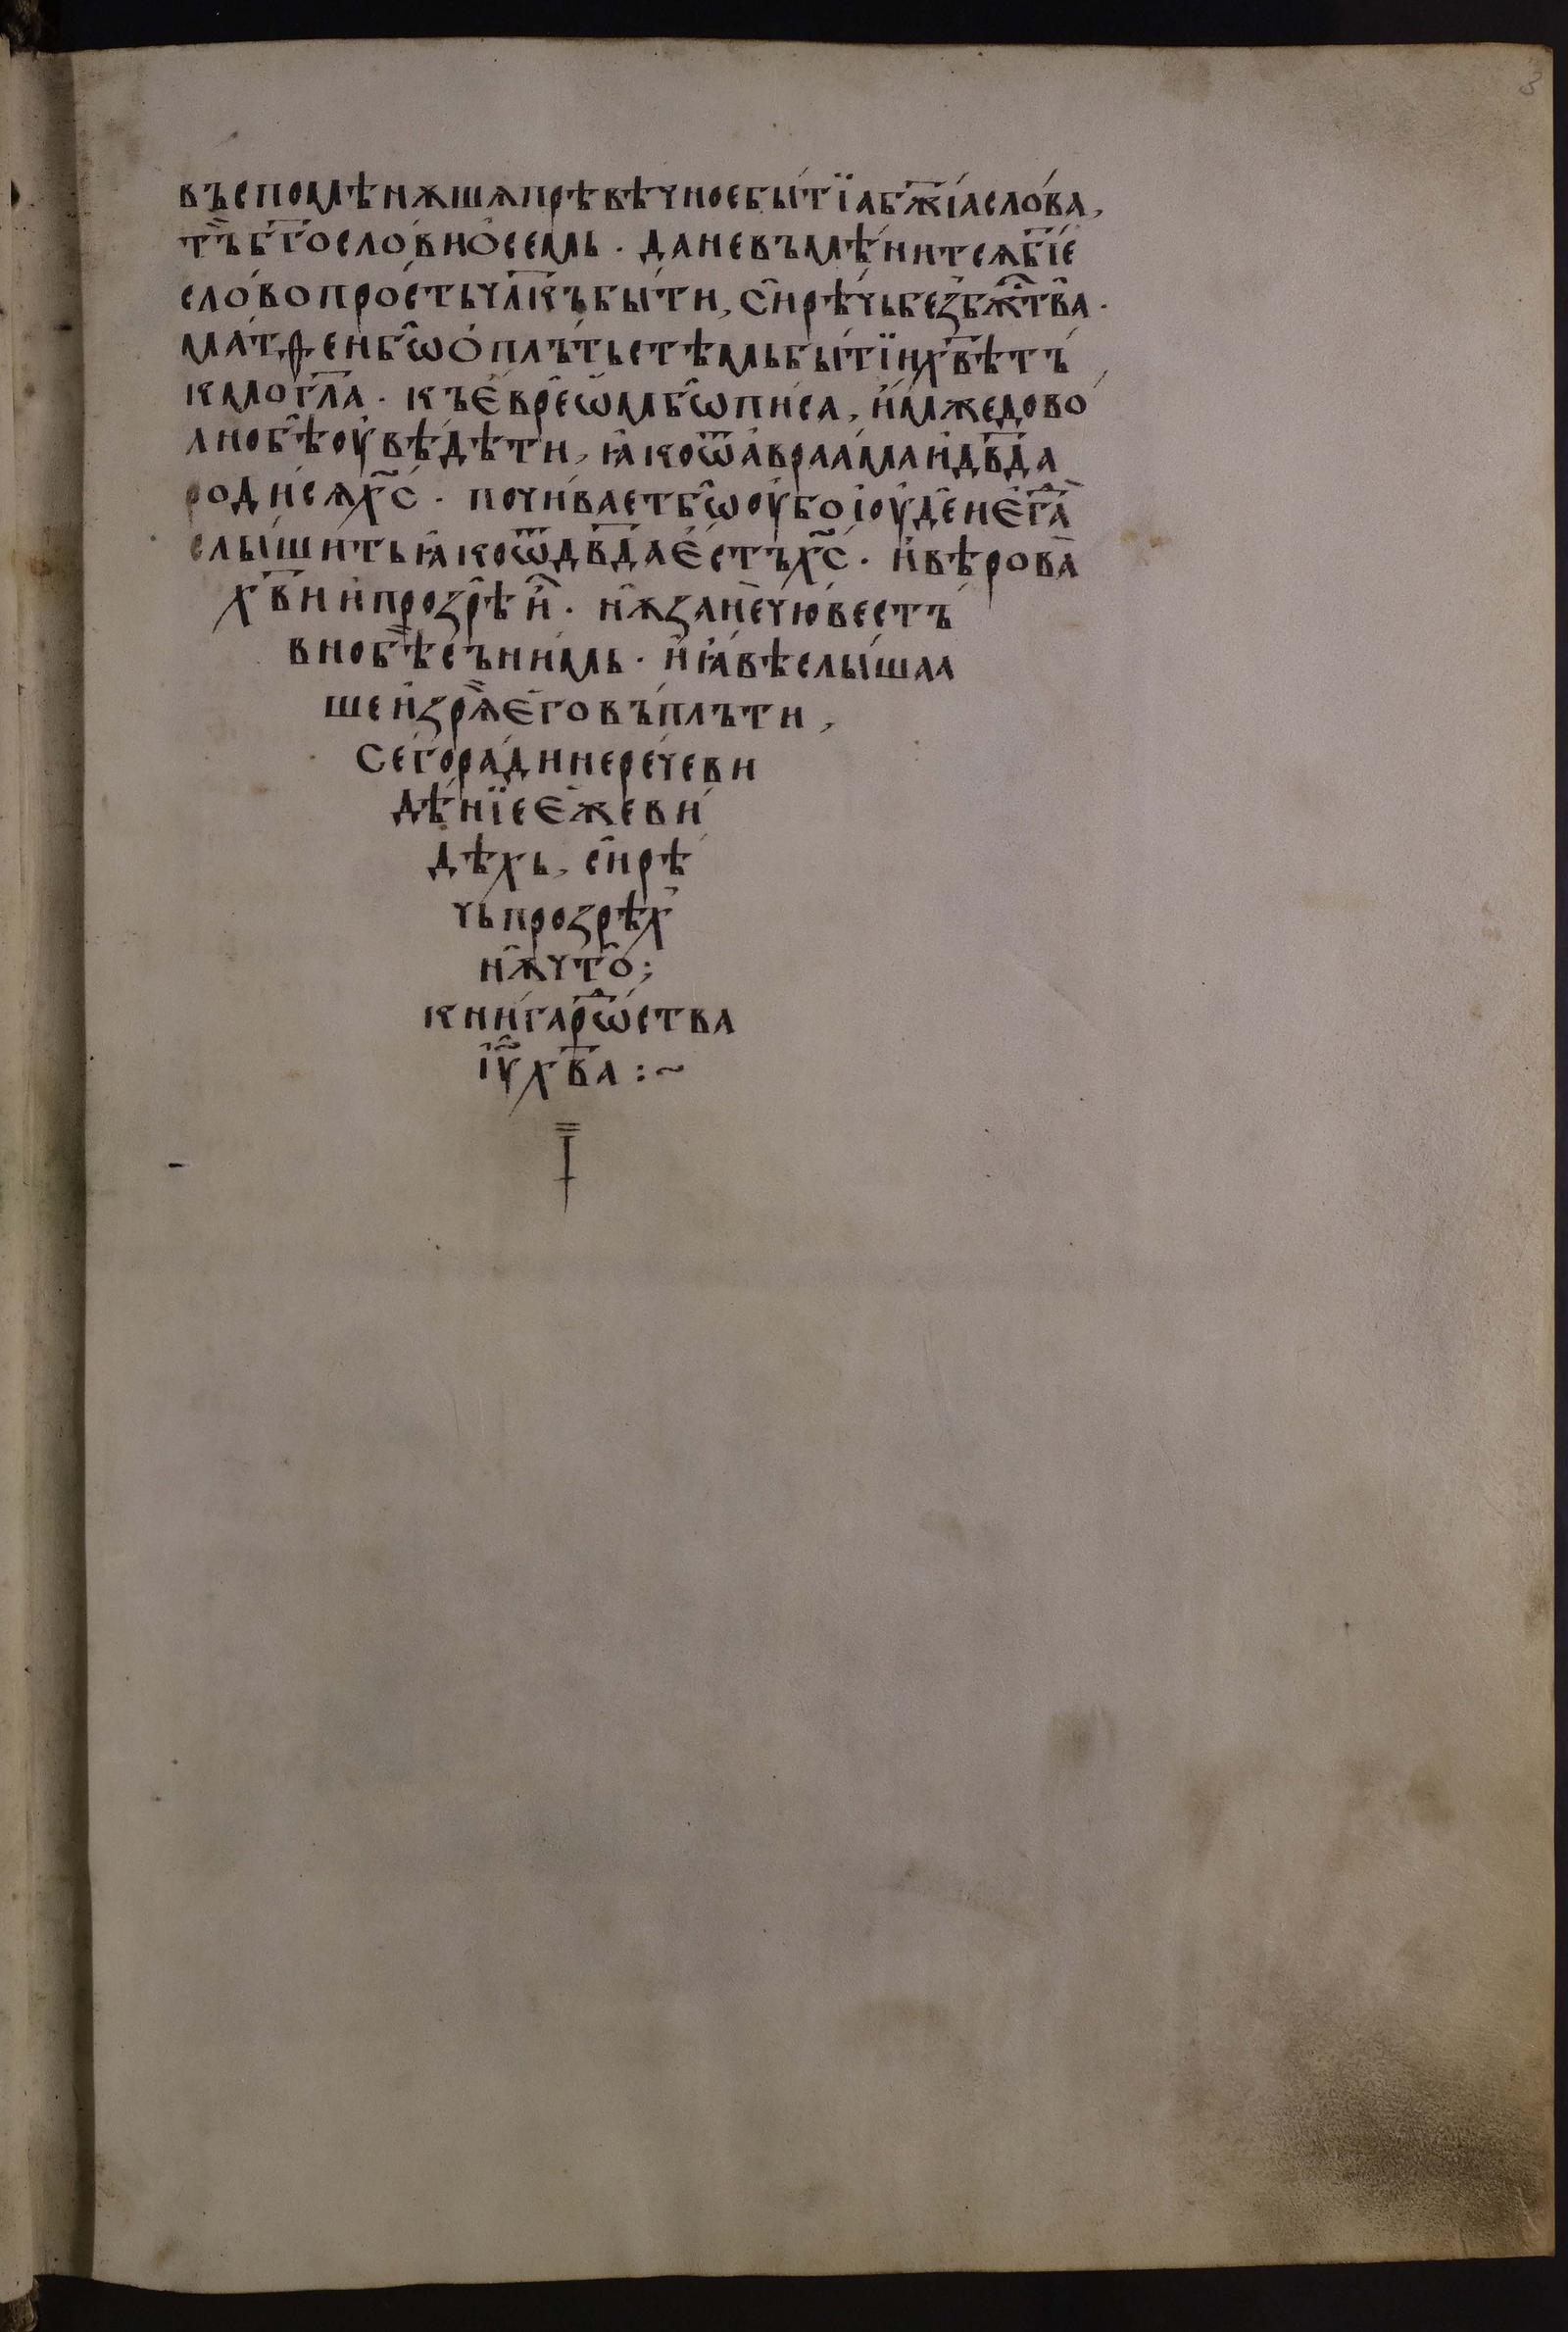 въспомѣнѫшѧпрѣвѣчноебы́тїабж҃їаслѡ́ва,
тъ̀бг҃осло́вно́сеемь · даневъмѣ́нитсѧбж҃їе
сло́вопро́стьчл҃къбы́ти, си̑рѣ́чьбезбж҃т̑ва ·
матѳе́йбѡ̑ѡ́плъ́тьстѣмьбы́тїих҃вѣтъ́
кмогл҃а · къе҆врє́ѡмбѡ̑пи́са, и҆́мжедово́
лнобѣ̀оу҆вѣ́дѣти, ꙗ҆коѿа҆враа́маи҆дв҃да
роди́сѧх҃с · почи́ваетбѡ̑оу҆́боіоуде́иє҆гда̀
слы́шитьꙗ҆коѿдв҃дає҆́стъх҃с · и҆вѣ́рова
х҃вии҆прозрѣ́нїи · нѫ̑зане́чю́вестъ
внобѣ̀съни́мь · и҆ꙗ҆́вѣслы́шаа
шеи҆зрѧ̀є҆гѡ̀въпль́ти,
Сегора́диирече́ви
дѣ́нїеє҆́жеви́
дѣхь, си̑рѣ́
чьпрозрѣ́х
нѫ̑что̀;
кни́гарѡ҃ства
і҆у҃х҃ва :~
3